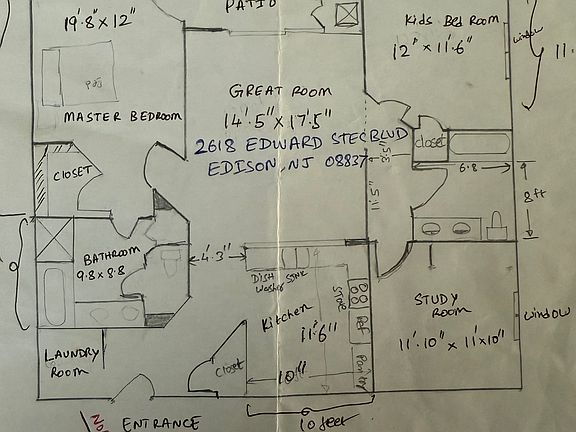 PATIO
19'.8" x 12"
Kids Bed Room
12" x 11'.6"
window
11.
Bed
MASTER BEDROOM
GREAT ROOM
14'.5" x 17'.5"
2618 EDWARD STEC BLVD
EDISON, NJ 08837
closet
3'.5"
6.8
8ft
11'.5"
CLOSET
BATHROOM
9.8 x 8.8
4'.3"
DISH
Washer
SINK
Kitchen
11'6"
10"
Stove
Ref
Pantry
STUDY
ROOM
11'.10" x 11'x10"
window
LAUNDRY
ROOM
Closet
ENTRANCE
10 feet